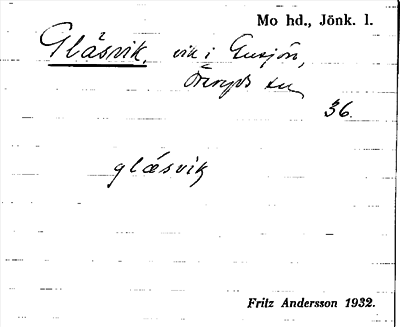 Mo hd., Jönk. l.
Gläsvik, vik i Ensjön,
Öreryds sn
36.
glæsvik
Fritz Andersson 1932.